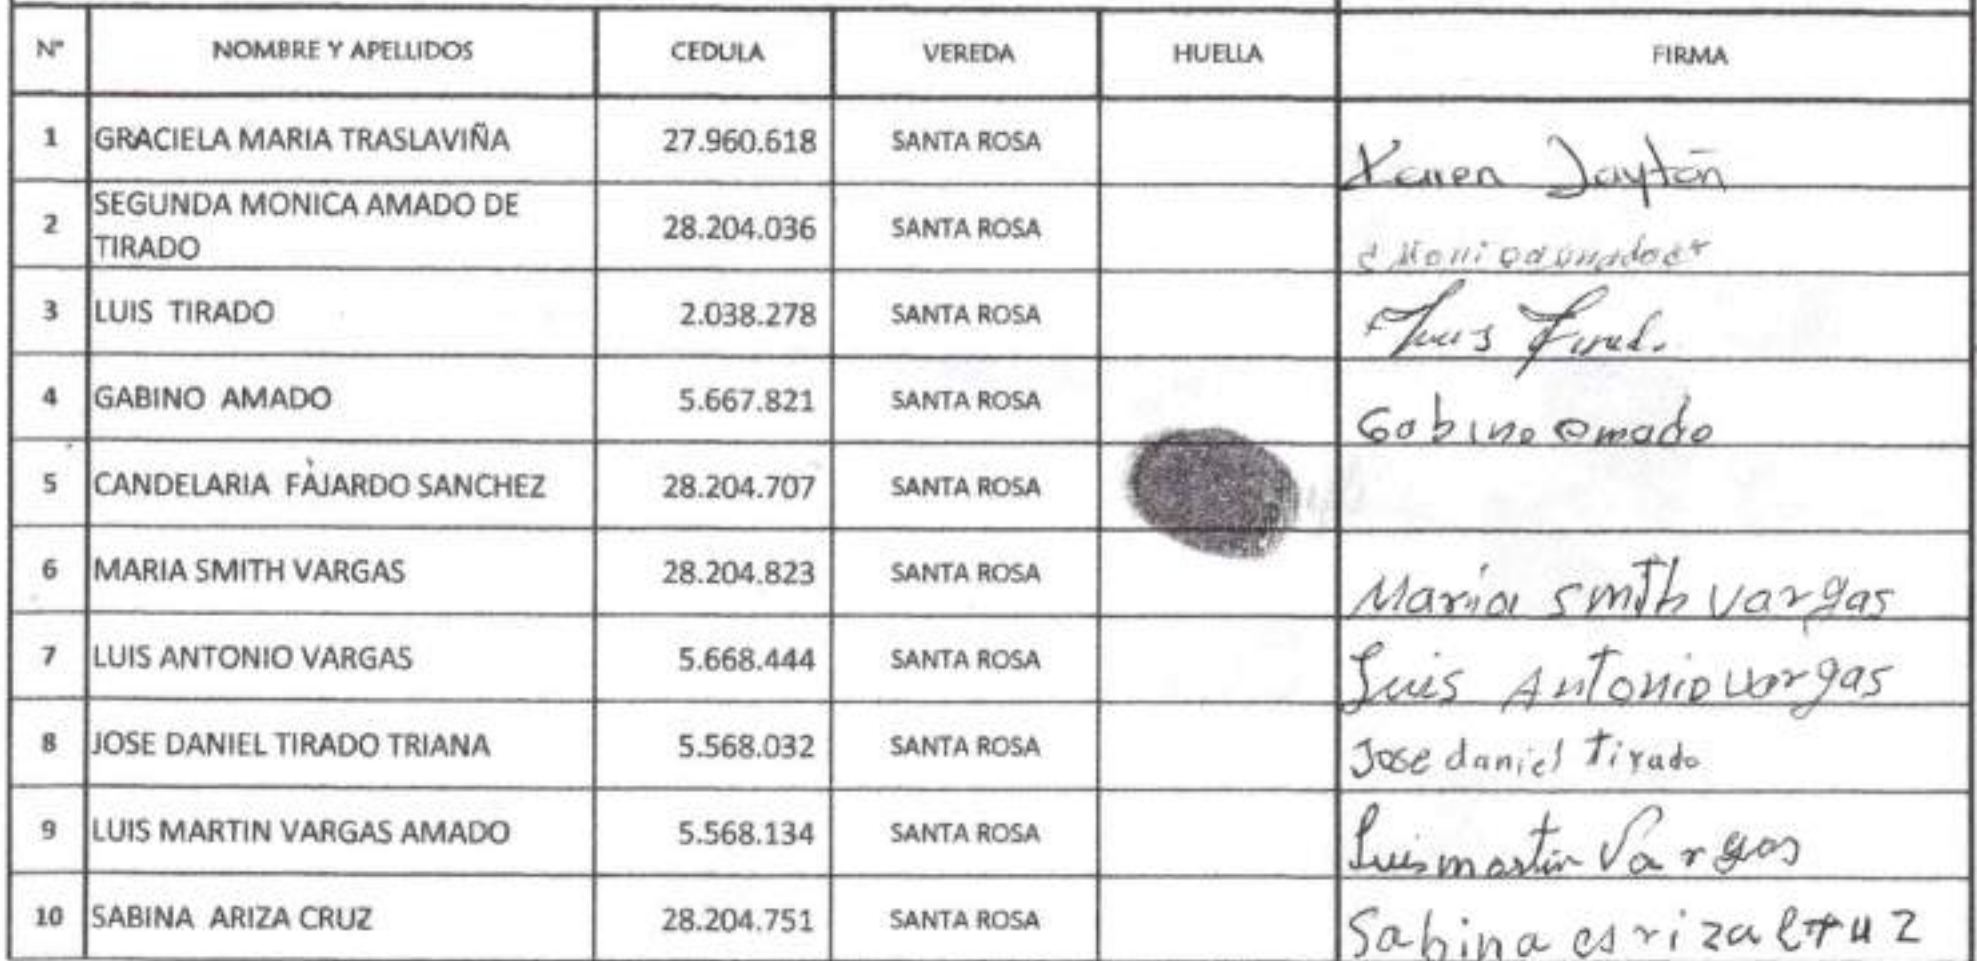 N° NOMBRE Y APELLIDOS CEDULA VEREDA HUELLA FIRMA
1 GRACIELA MARIA TRASLAVIÑA 27.960.618 SANTA ROSA Karen
2 SEGUNDA MONICA AMADO DE TIRADO 28.204.036 SANTA ROSA
3 LUIS TIRADO 2.038.278 SANTA ROSA Luis
4 GABINO AMADO 5.667.821 SANTA ROSA Gabino Amado
5 CANDELARIA FAJARDO SANCHEZ 28.204.707 SANTA ROSA
6 MARIA SMITH VARGAS 28.204.823 SANTA ROSA Maria smith vargas
7 LUIS ANTONIO VARGAS 5.668.444 SANTA ROSA Luis Antonio vargas
8 JOSE DANIEL TIRADO TRIANA 5.568.032 SANTA ROSA Jose daniel Tirado
9 LUIS MARTIN VARGAS AMADO 5.568.134 SANTA ROSA Luis martin Vargas
10 SABINA ARIZA CRUZ 28.204.751 SANTA ROSA Sabina